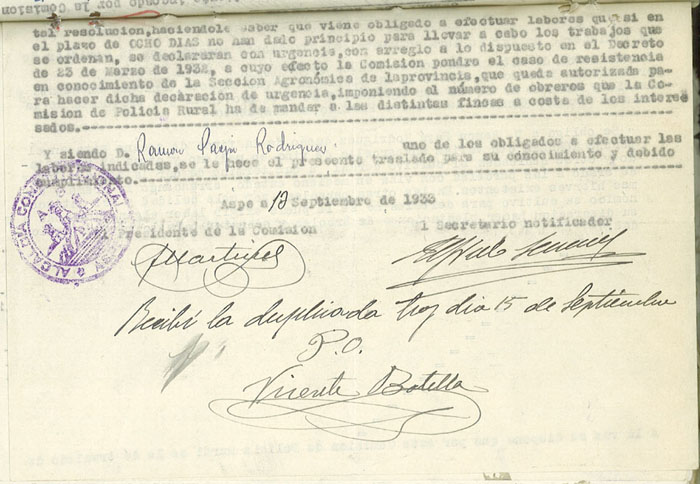 tal resolucion,haciendole saber que viene obligado a efectuar labores que si en
el plazo de OCHO DIAS no han dado principio para llevar a cabo los trabajos que
se ordenan, se declararan con urgencia,con arreglo a lo dispuesto en el Decreto
de 23 de Marzo de 1932, a cuyo efecto la Comision pondre el caso de resistencia
en conocimiento de la Seccion Agronómica de laprovincia,que queda autorizada pa-
ra hacer dicha declaración de urgencia,imponiendo al número de obreros que la Co-
mision de Policia Rural ha de mandar a las distintas fincas a costa de los intere
sados.
Y siendo D. Ramon Rodriguez uno de los obligados a efectuar las
labores indicadas,se le hace el presente traslado para su conocimiento y debido
cumplimiento.
Aspe a 12 Septiembre de 1933
Presidente de la Comision
El Secretario notificador
ALCALDIA ASPE
Martinez
Recibí la duplicada hoy dia 15 de Septiembre
P.O.
Vicente Botella